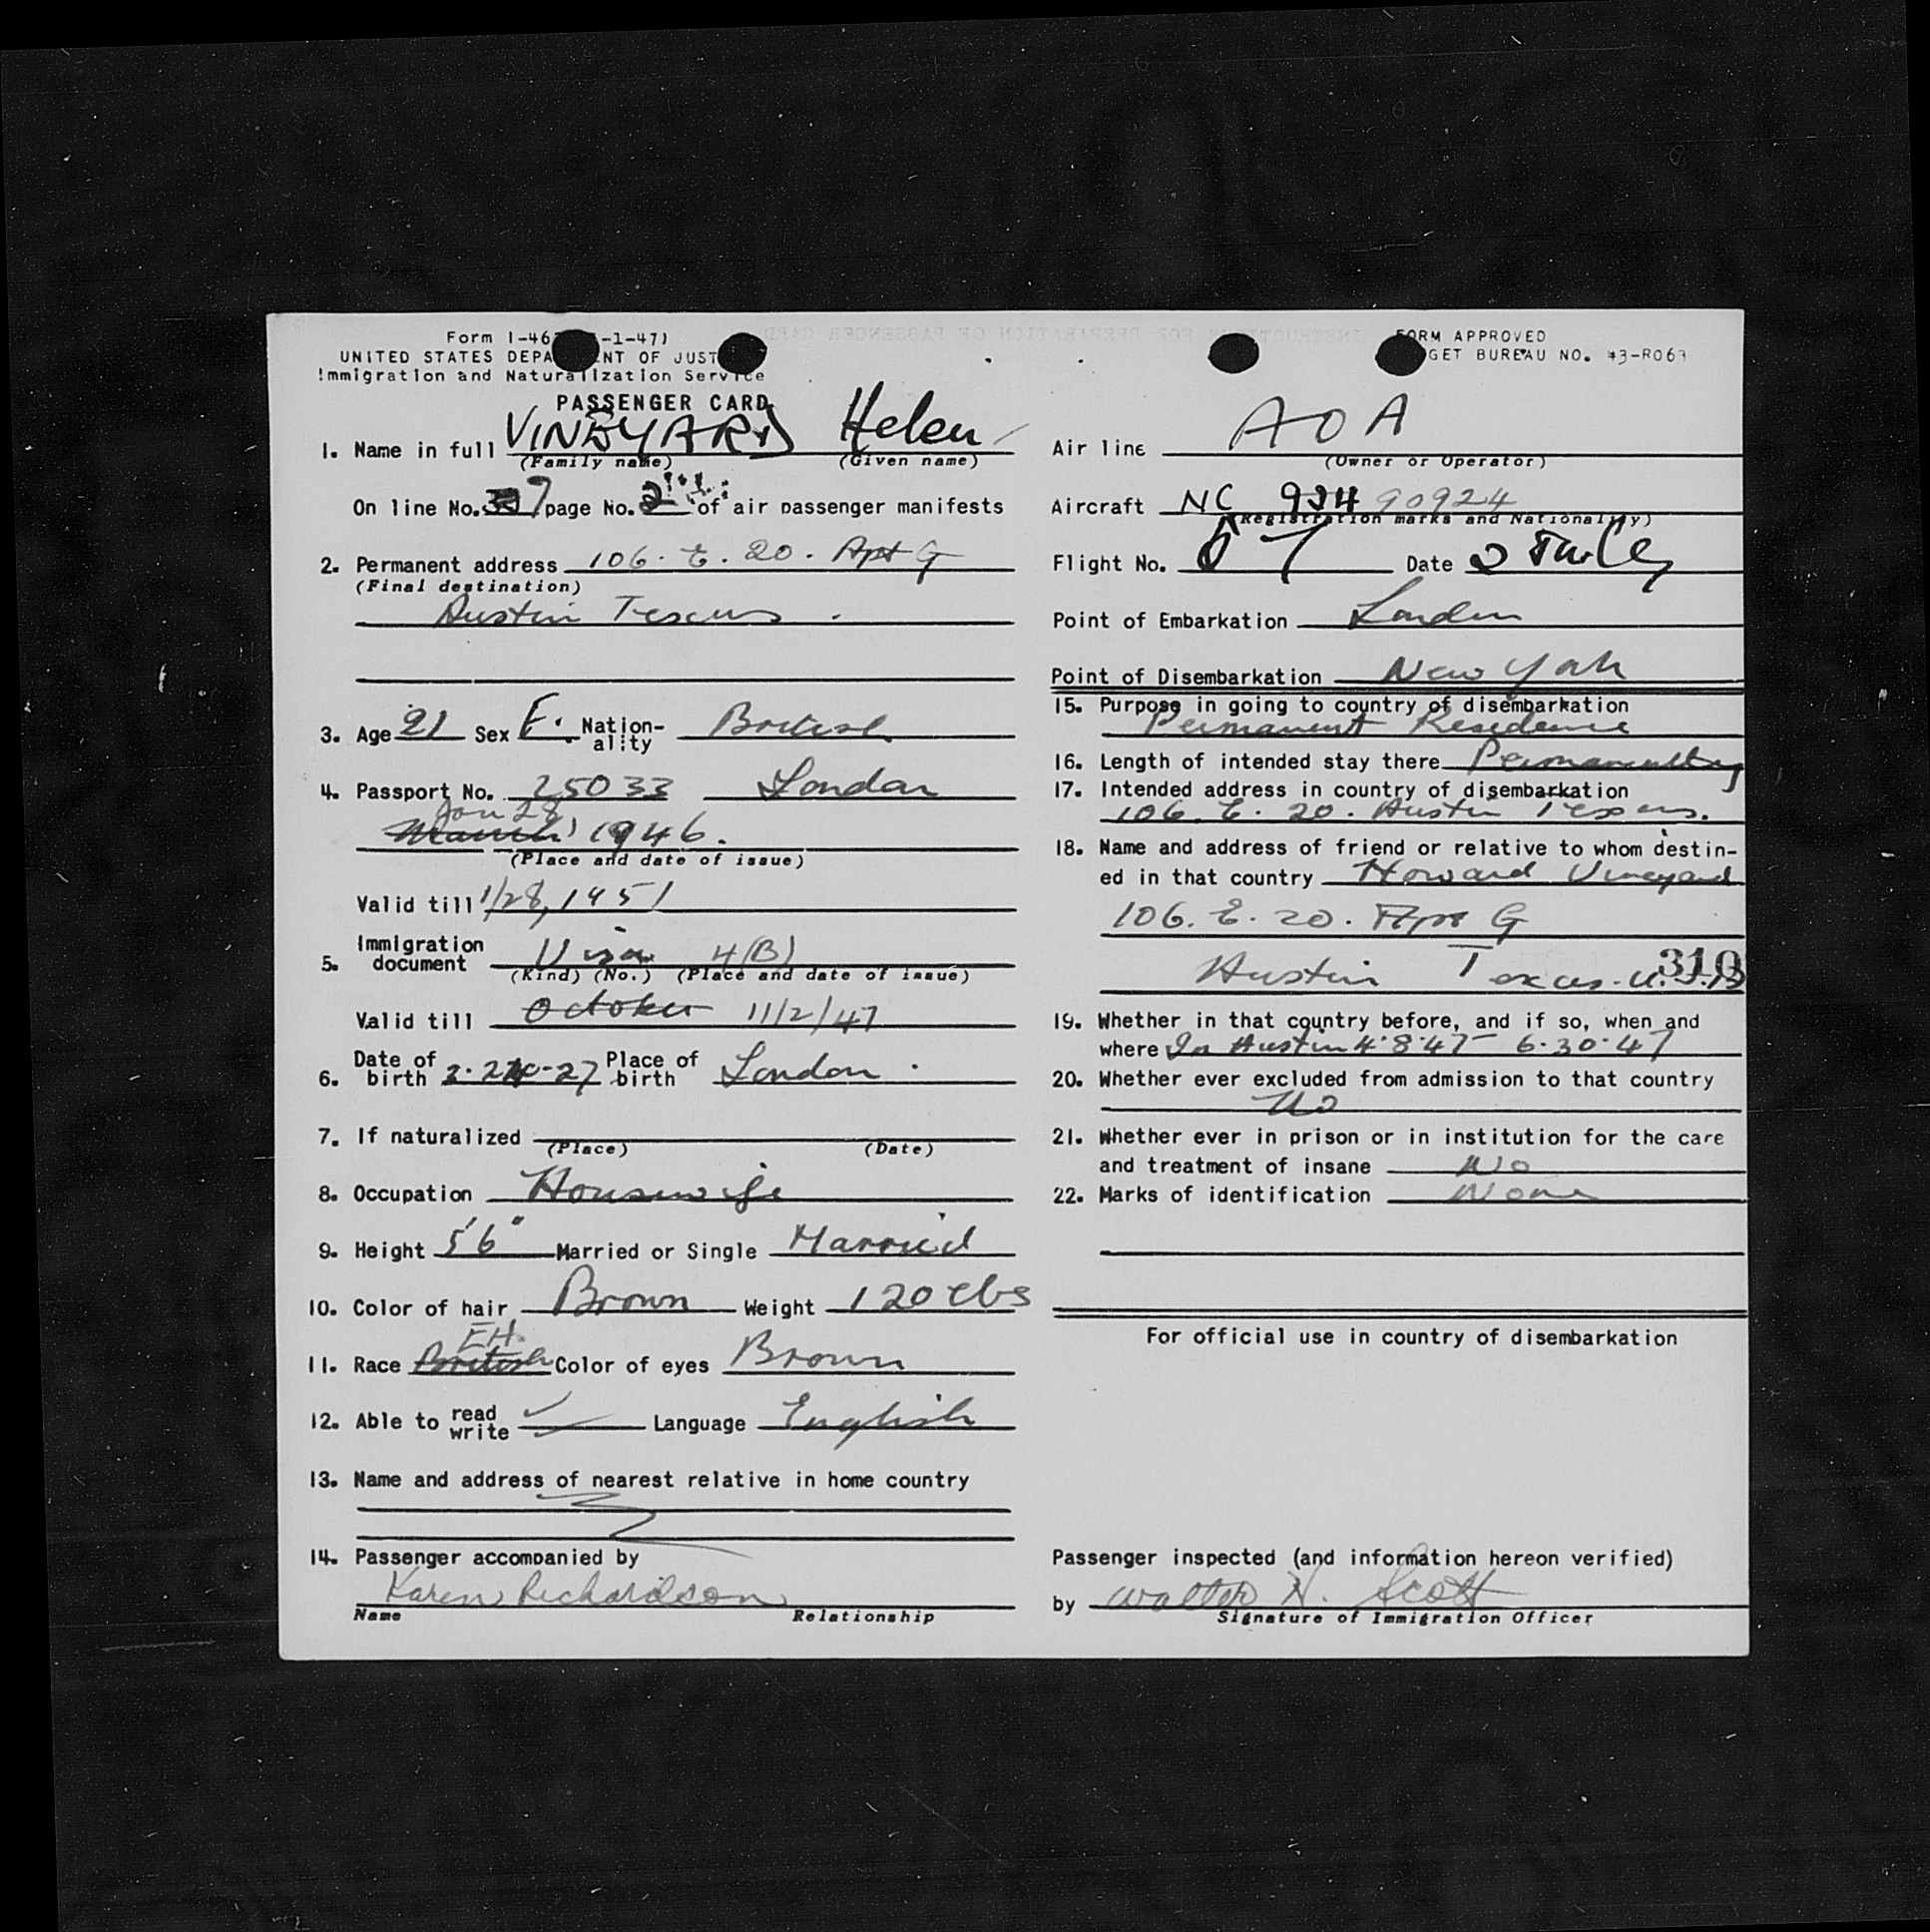 Form I-46 -1-47)
UNITED STATES DEPA NT OF JUST
Immigration and Naturalization Service
PASSENGER CARD
1. Name in full VINEYARD Helen
(Family name) (Given name)
On line No. 7 page No. 2 of air passenger manifests
2. Permanent address 106. E. 20. Apt G
(Final destination)
Austin Texas.
3. Age 21 Sex F. Nationality British
4. Passport No. 25033 London
Jan 28
March 1946.
(Place and date of issue)
Valid till 1/28, 1951
5. Immigration document Visa 4(B)
(Kind) (No.) (Place and date of issue)
Valid till October 11/2/47
6. Date of birth -27 Place of birth London.
7. If naturalized
(Place) (Date)
8. Occupation Housewife
9. Height 5'6" Married or Single Married
10. Color of hair Brown Weight 120 lbs
EH.
11. Race British Color of eyes Brown
12. Able to read write ✓ Language English
13. Name and address of nearest relative in home country
14. Passenger accompanied by
Karen Richardson
Name Relationship
FORM APPROVED
GET BUREAU NO. 43-R063
Air line AOA
(Owner or Operator)
Aircraft NC 924 90924
(Registration marks and Nationality)
Flight No. 57 Date 2 July
Point of Embarkation London
Point of Disembarkation New York
15. Purpose in going to country of disembarkation
Permanent Residence
16. Length of intended stay there Permanently
17. Intended address in country of disembarkation
106. E. 20. Austin Texas.
18. Name and address of friend or relative to whom destin-
ed in that country Howard Vineyard
106. E. 20. Apt G
Austin Texas. U.S.A
310
19. Whether in that country before, and if so, when and
where In Austin 4.8.47 - 6.30.47
20. Whether ever excluded from admission to that country
No
21. Whether ever in prison or in institution for the care
and treatment of insane No
22. Marks of identification None
For official use in country of disembarkation
Passenger inspected (and information hereon verified)
by Walter N. Scott
Signature of Immigration Officer